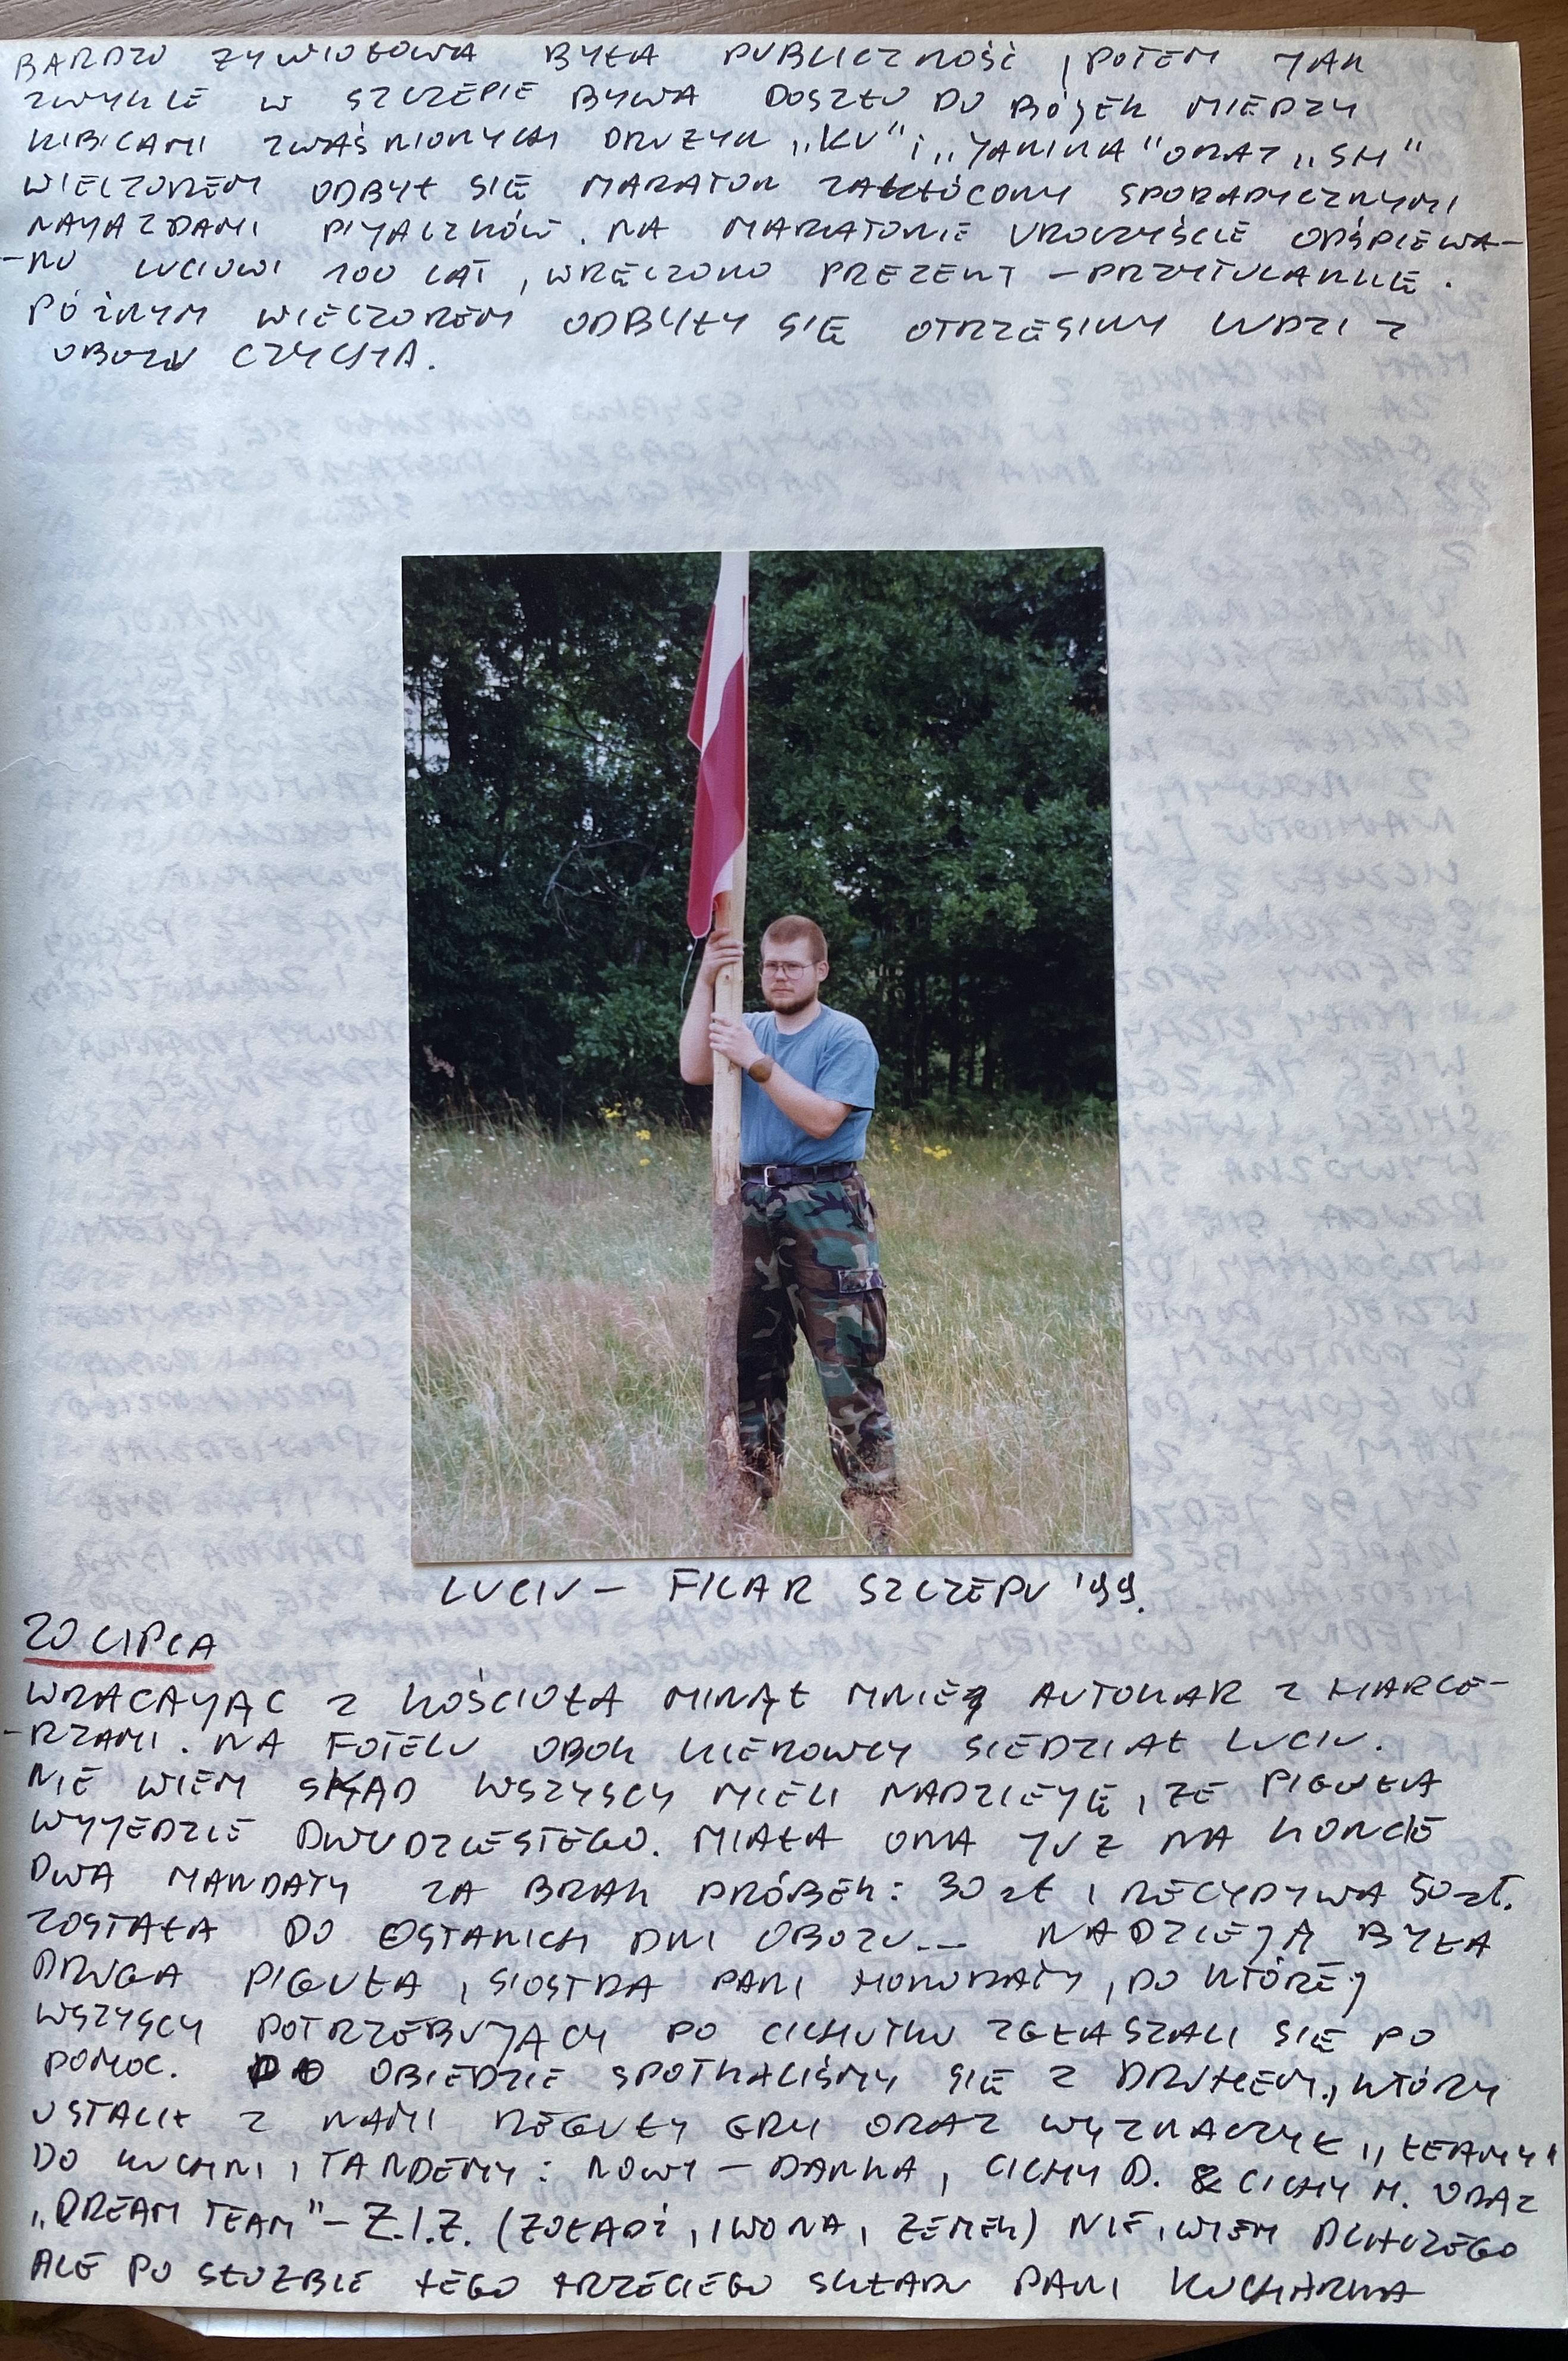 BARDZO ŻYWIOŁOWA BYŁA PUBLICZNOŚĆ, POTEM JAK
ZWYKLE W SZCZEPIE BYWA DOSZŁO DO BÓJEK MIEDZY
KIBICAMI ZWAŚNIONYCH DRUŻYN „KU" i „JANINA" ORAZ „SM"
WIECZOREM ODBYŁ SIĘ MARATON ZAKŁÓCONY SPORADYCZNYMI
NAJAZDAMI PIJACZKÓW. NA MARATONIE UROCZYŚCIE ODŚPIEWA-
-NO LUCIOWI 100 LAT, WRĘCZONO PREZENT - PRZYTULANKĘ.
PÓŹNYM WIECZOREM ODBYŁY SIĘ OTRZĘSINY LUDZI Z
OBOZU CZYCHA.
LUCIU - FILAR SZCZEPU '99.
20 LIPCA
WRACAJĄC Z KOŚCIOŁA MINĄŁ MNIE AUTOKAR Z HARCE-
-RZAMI. NA FOTELU OBOK KIEROWCY SIEDZIAŁ LUCIU.
NIE WIEM SKĄD WSZYSCY MIELI NADZIEJĘ, ŻE PIGUŁA
WYJEDZIE DWUDZIESTEGO. MIAŁA ONA JUŻ NA KONCIE
DWA MANDATY ZA BRAK PRÓBEK: 30 zł I RECYDYWA 50 zł.
ZOSTAŁA DO OSTANICH DNI OBOZU... NADZIEJĄ BYŁA
DRUGA PIGUŁA, SIOSTRA PANI HONORATY, DO KTÓREJ
WSZYSCY POTRZEBUJĄCY PO CICHUTKU ZGŁASZALI SIĘ PO
POMOC. PO OBIEDZIE SPOTKALIŚMY SIĘ Z DRUHEM, KTÓRY
USTALIŁ Z NAMI REGUŁY GRY ORAZ WYZNACZYŁ „TEAMY"
DO KUCHNI, TANDEMY: NOWY - DANKA, CICHY D. & CICHY M. ORAZ
„DREAM TEAM" - Z.I.Z. (ŻOŁĄDŹ, IWONA, ZEMEK) NIE WIEM DLACZEGO
ALE PO SŁUŻBIE TEGO TRZECIEGO SKŁADU PANI KUCHARKA